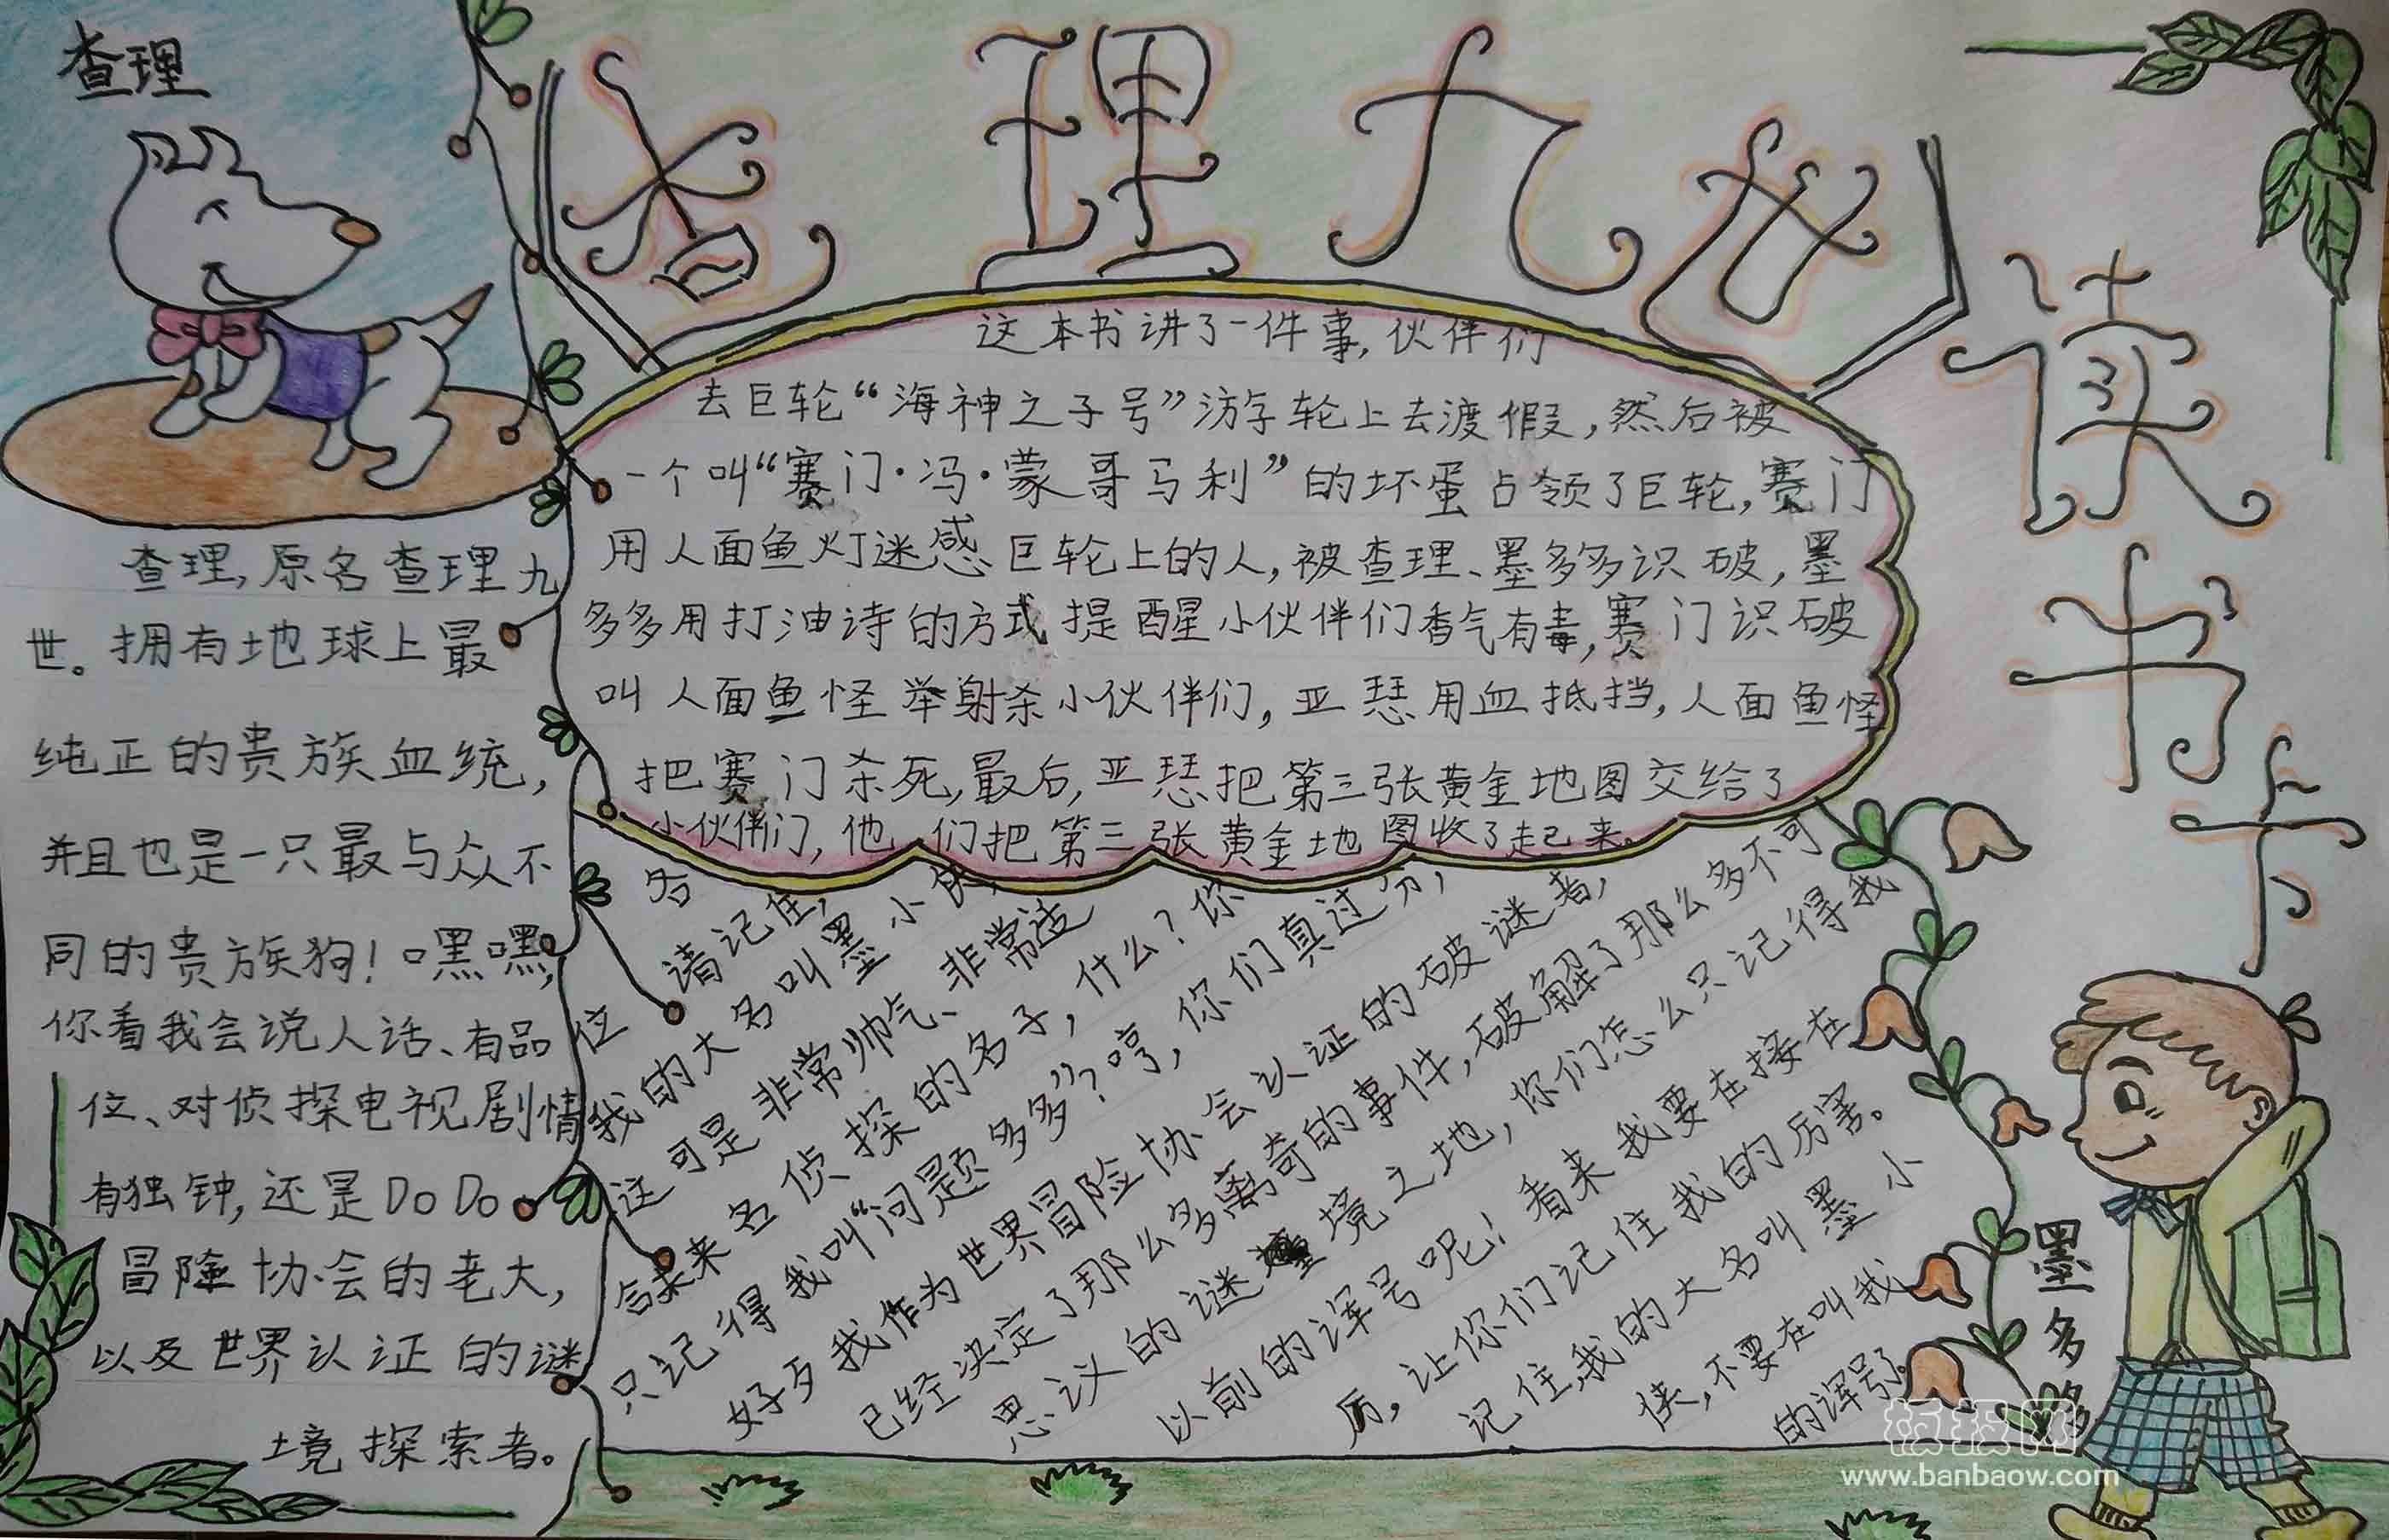 查理九世
读书卡
查理
查理,原名查理九
世。拥有地球上最
纯正的贵族血统,
并且也是一只最与众不
同的贵族狗!嘿嘿,
你看我会说人话、有品
位、对侦探电视剧情
有独钟,还是DoDo
冒险协会的老大,
以及世界认证的谜
境探索者。
这本书讲了一件事,伙伴们
去巨轮“海神之子号”游学轮上去渡假,然后被
一个叫“赛门·冯·蒙哥马利”的坏蛋占领了巨轮,赛门
用人面鱼灯迷惑巨轮上的人,被查理、墨多多识破,墨
多多用打油诗的方式提醒小伙伴们香气有毒,赛门识破
叫人面鱼怪举射杀小伙伴们,亚瑟用血抵挡,人面鱼怪
把赛门杀死,最后,亚瑟把第三张黄金地图交给了
小伙伴们,他们把第三张黄金地图收了起来。
各
位请记住,
我的大名叫墨小侠,
这可是非常帅气、非常适
合未来名侦探的名子,什么?你
只记得我叫“问题多多”?哼,你们真过分,
好歹我作为世界冒险协会认证的破谜者,
已经决定了那么多离奇的事件,破解了那么多不可
思议的谜境之地,你们怎么只记得我
以前的诨号呢!看来我要在接在
厉,让你们记住我的厉害。
记住,我的大名叫墨小
侠,不要在叫我
的诨号了。
墨多多
板报网
www.banbaow.com